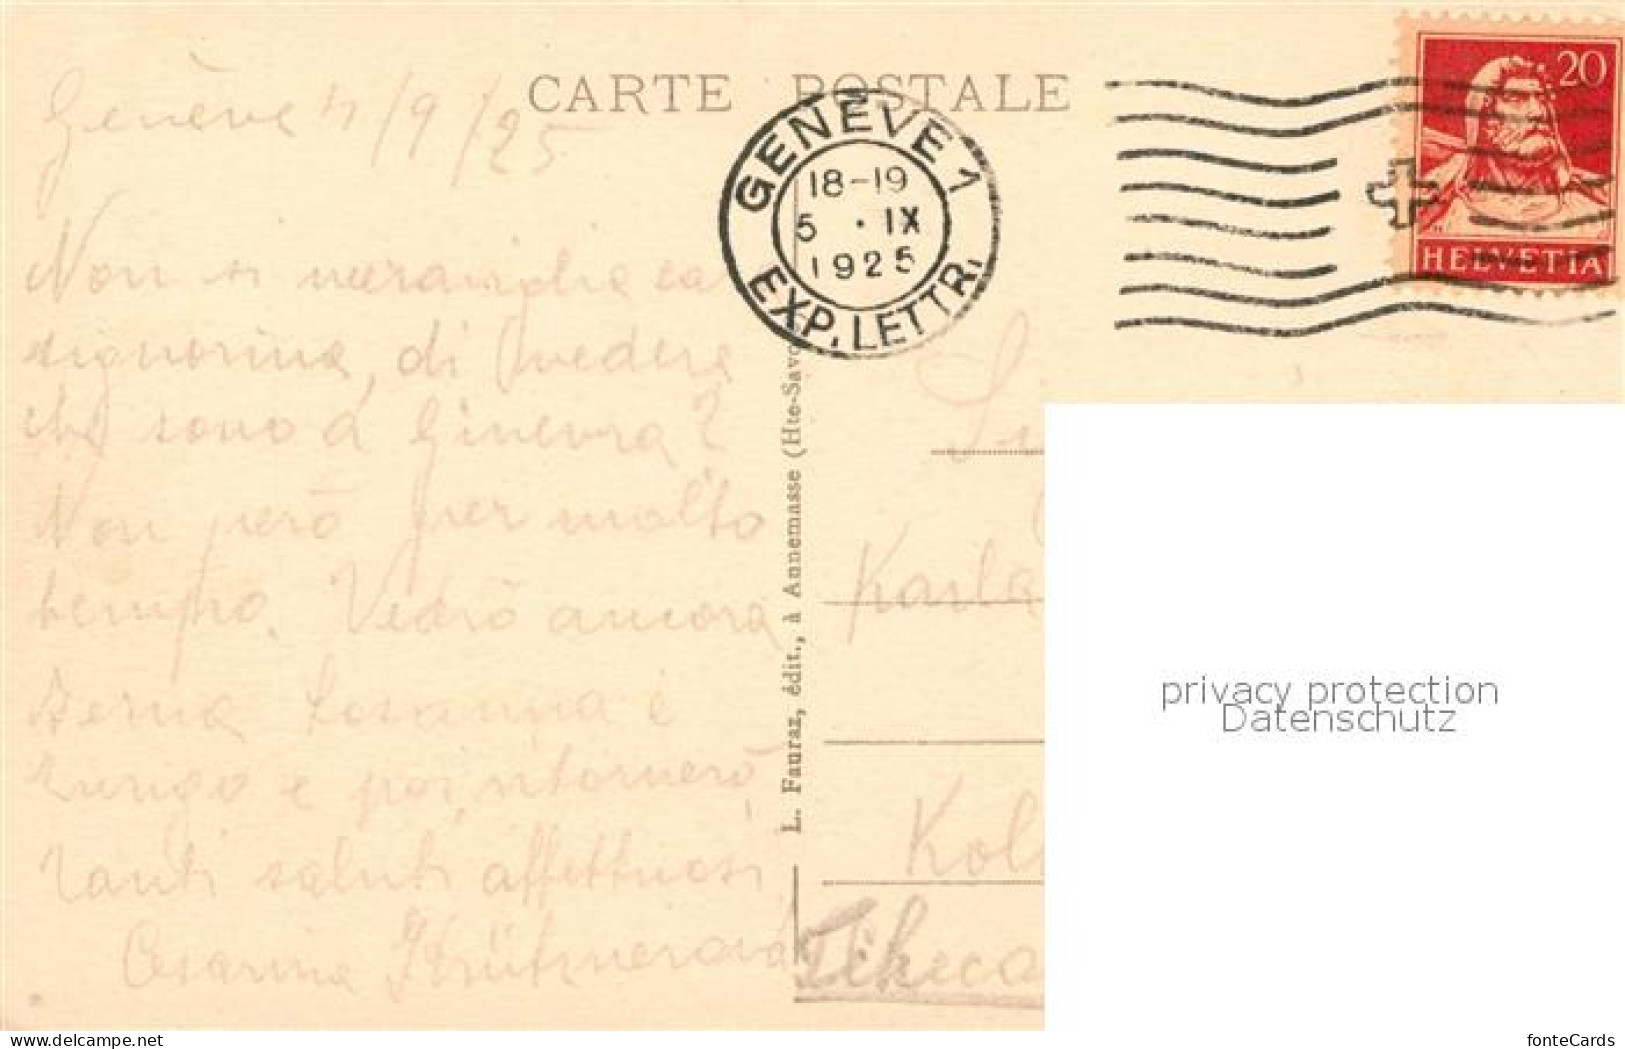 CARTE POSTALE
Genève 4/9/25
GENÈVE 1
18-19
5 · IX
1925
EXP. LETTR.
20
HELVETIA
Non si meraviglie la
signorina, di vedere
che sono a Ginevra?
Non però per molto
tempo. Vedrò ancora
Berna Losanna e
Zurigo e poi ritornerò
Tanti saluti affettuosi
Cesarina
L. Fauraz, édit., à Annemasse (Hte-Savo
Karla
Kol
privacy protection
Datenschutz
www.delcampe.net
fonteCards